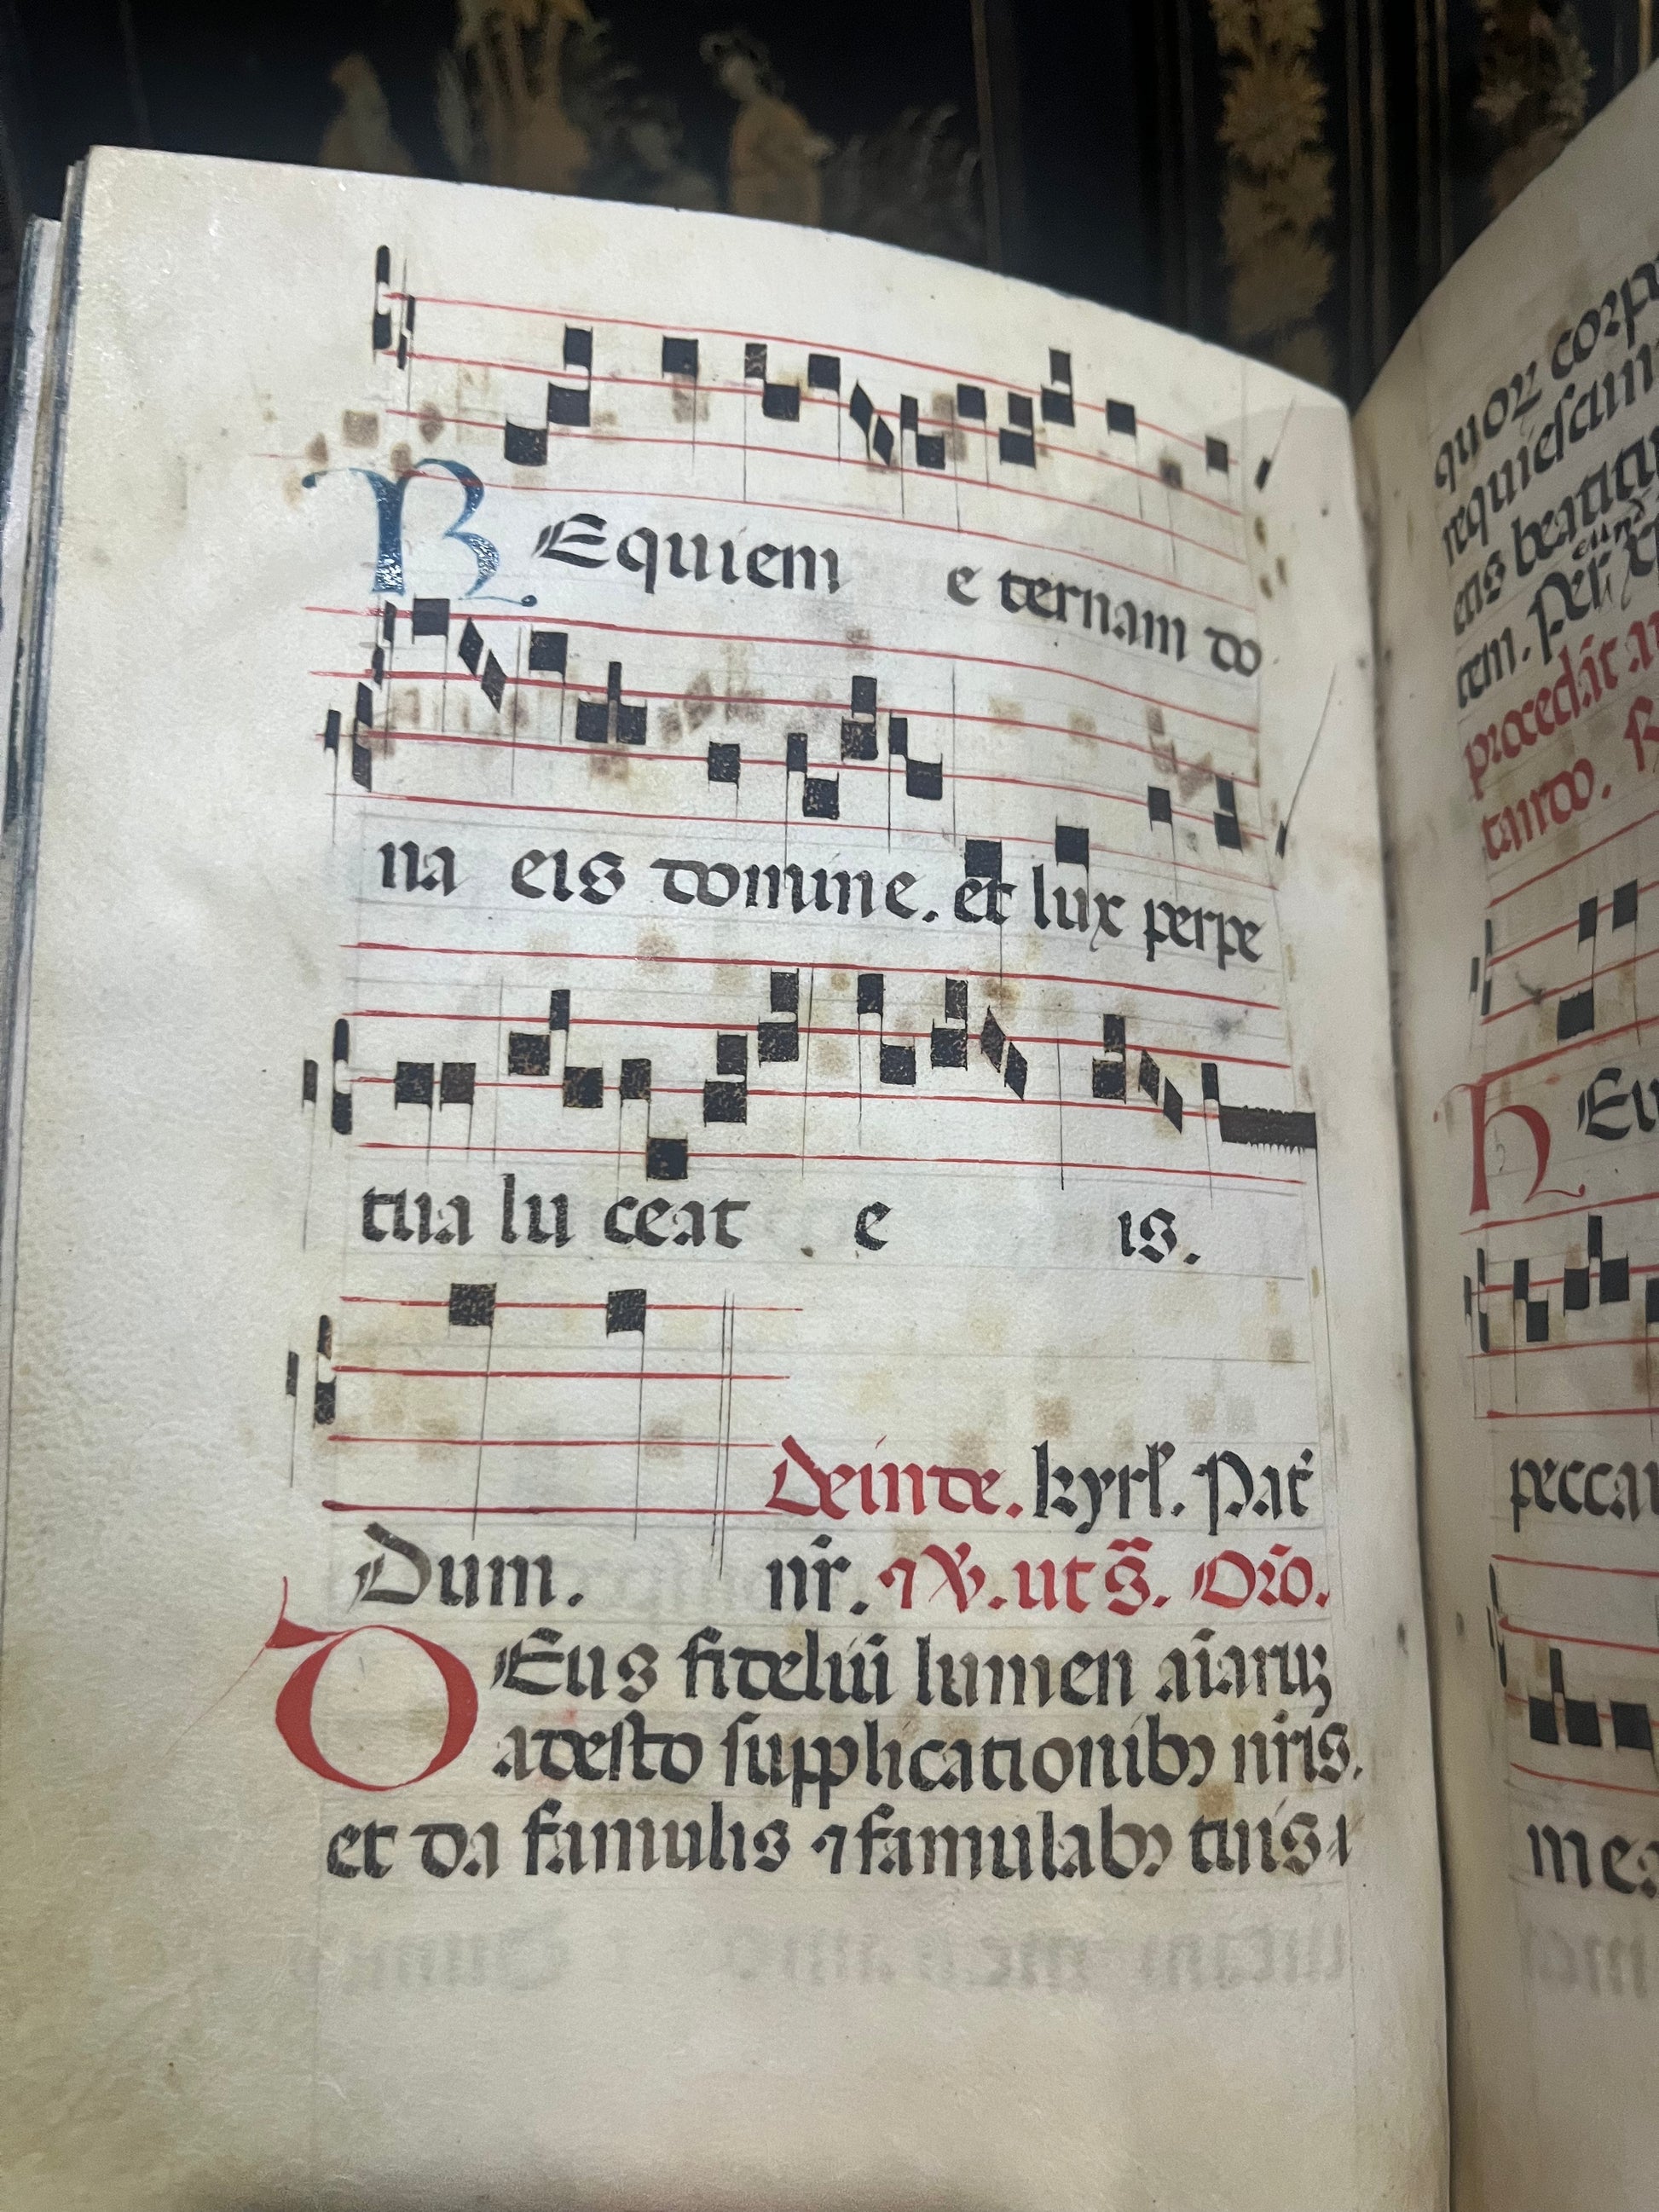 REquiem e ternam do
na eis domine. et lux perpe
tua lu ceat e is.
Deinde. kyrl̃. Pat̃
Dum. nr̃. ⁊ ℣. ut s̃. Oro̅.
DEus fideliũ lumen aĩaruꝫ
adesto supplicationibꝰ nr̃is.
et da famulis ⁊ famulabꝰ tuis
quoꝝ corp
requiescun
eis beatitu
tem. per
procedat̃
tando.
peccau
me